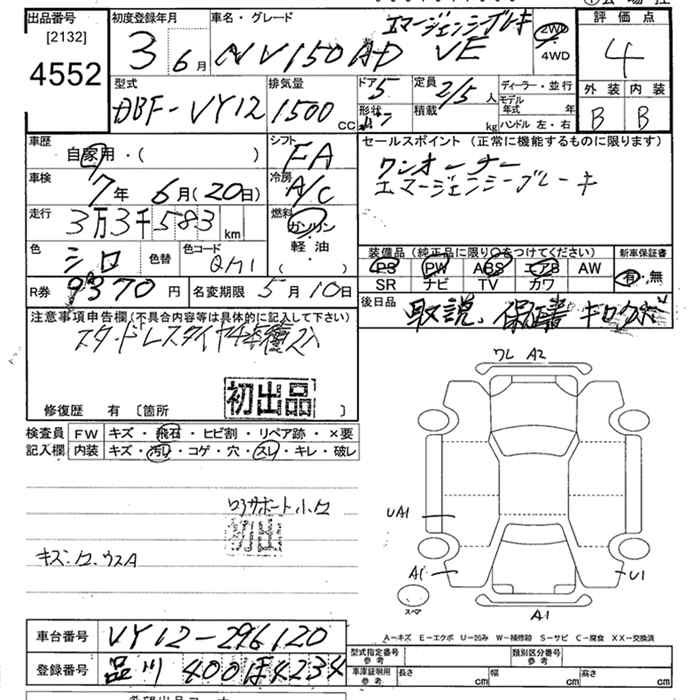 出品番号
[2132]
4552
初度登録年月
3 6月
車名・グレード
エマージェンシーブレーキ
NV150AD VE
2WD
4WD
評価点
4
外装 内装
B B
型式
DBF-VY12
排気量
1500 CC
ドア 5
形状
定員 2/5 人
積載 kg
ディーラー・並行
モデル年式 年
ハンドル 左・右
車歴
自家用・( )
シフト
FA
車検
7年 6月(20日)
冷房
A/C
走行
3万3千583km
燃料
ガソリン
軽・油
( )
色
シロ
色替
色コード
QM1
R券 9370円
名変期限 5月10日
セールスポイント(正常に機能するものに限ります)
ワンオーナー
エマージェンシーブレーキ
装備品(純正品に限り○をつけてください)
PS PW ABS エアB AW
SR ナビ TV カワ
新車保証書
有・無
後日品 取説、保証書 キロクボ
注意事項申告欄(不具合内容等は具体的に記入して下さい)
初出品
修復歴 有 [箇所 ]
検査員記入欄
FW キズ・飛石・ヒビ割・リペア跡・×要
内装 キズ・汚レ・コゲ・穴・スレ・キレ・破レ
初出
キズ・ワ、ウスA
ワレ A2
UA1
A1
U1
スペア
A1
A－キズ E－エクボ U－凹み W－補修跡 S－サビ C－腐食 XX－交換済
車台番号 VY12-296120
登録番号 品川 400ほ4234
型式指定番号 参考
類別区分番号 参考
車庫証明用 参考
長さ cm
幅 cm
高さ cm